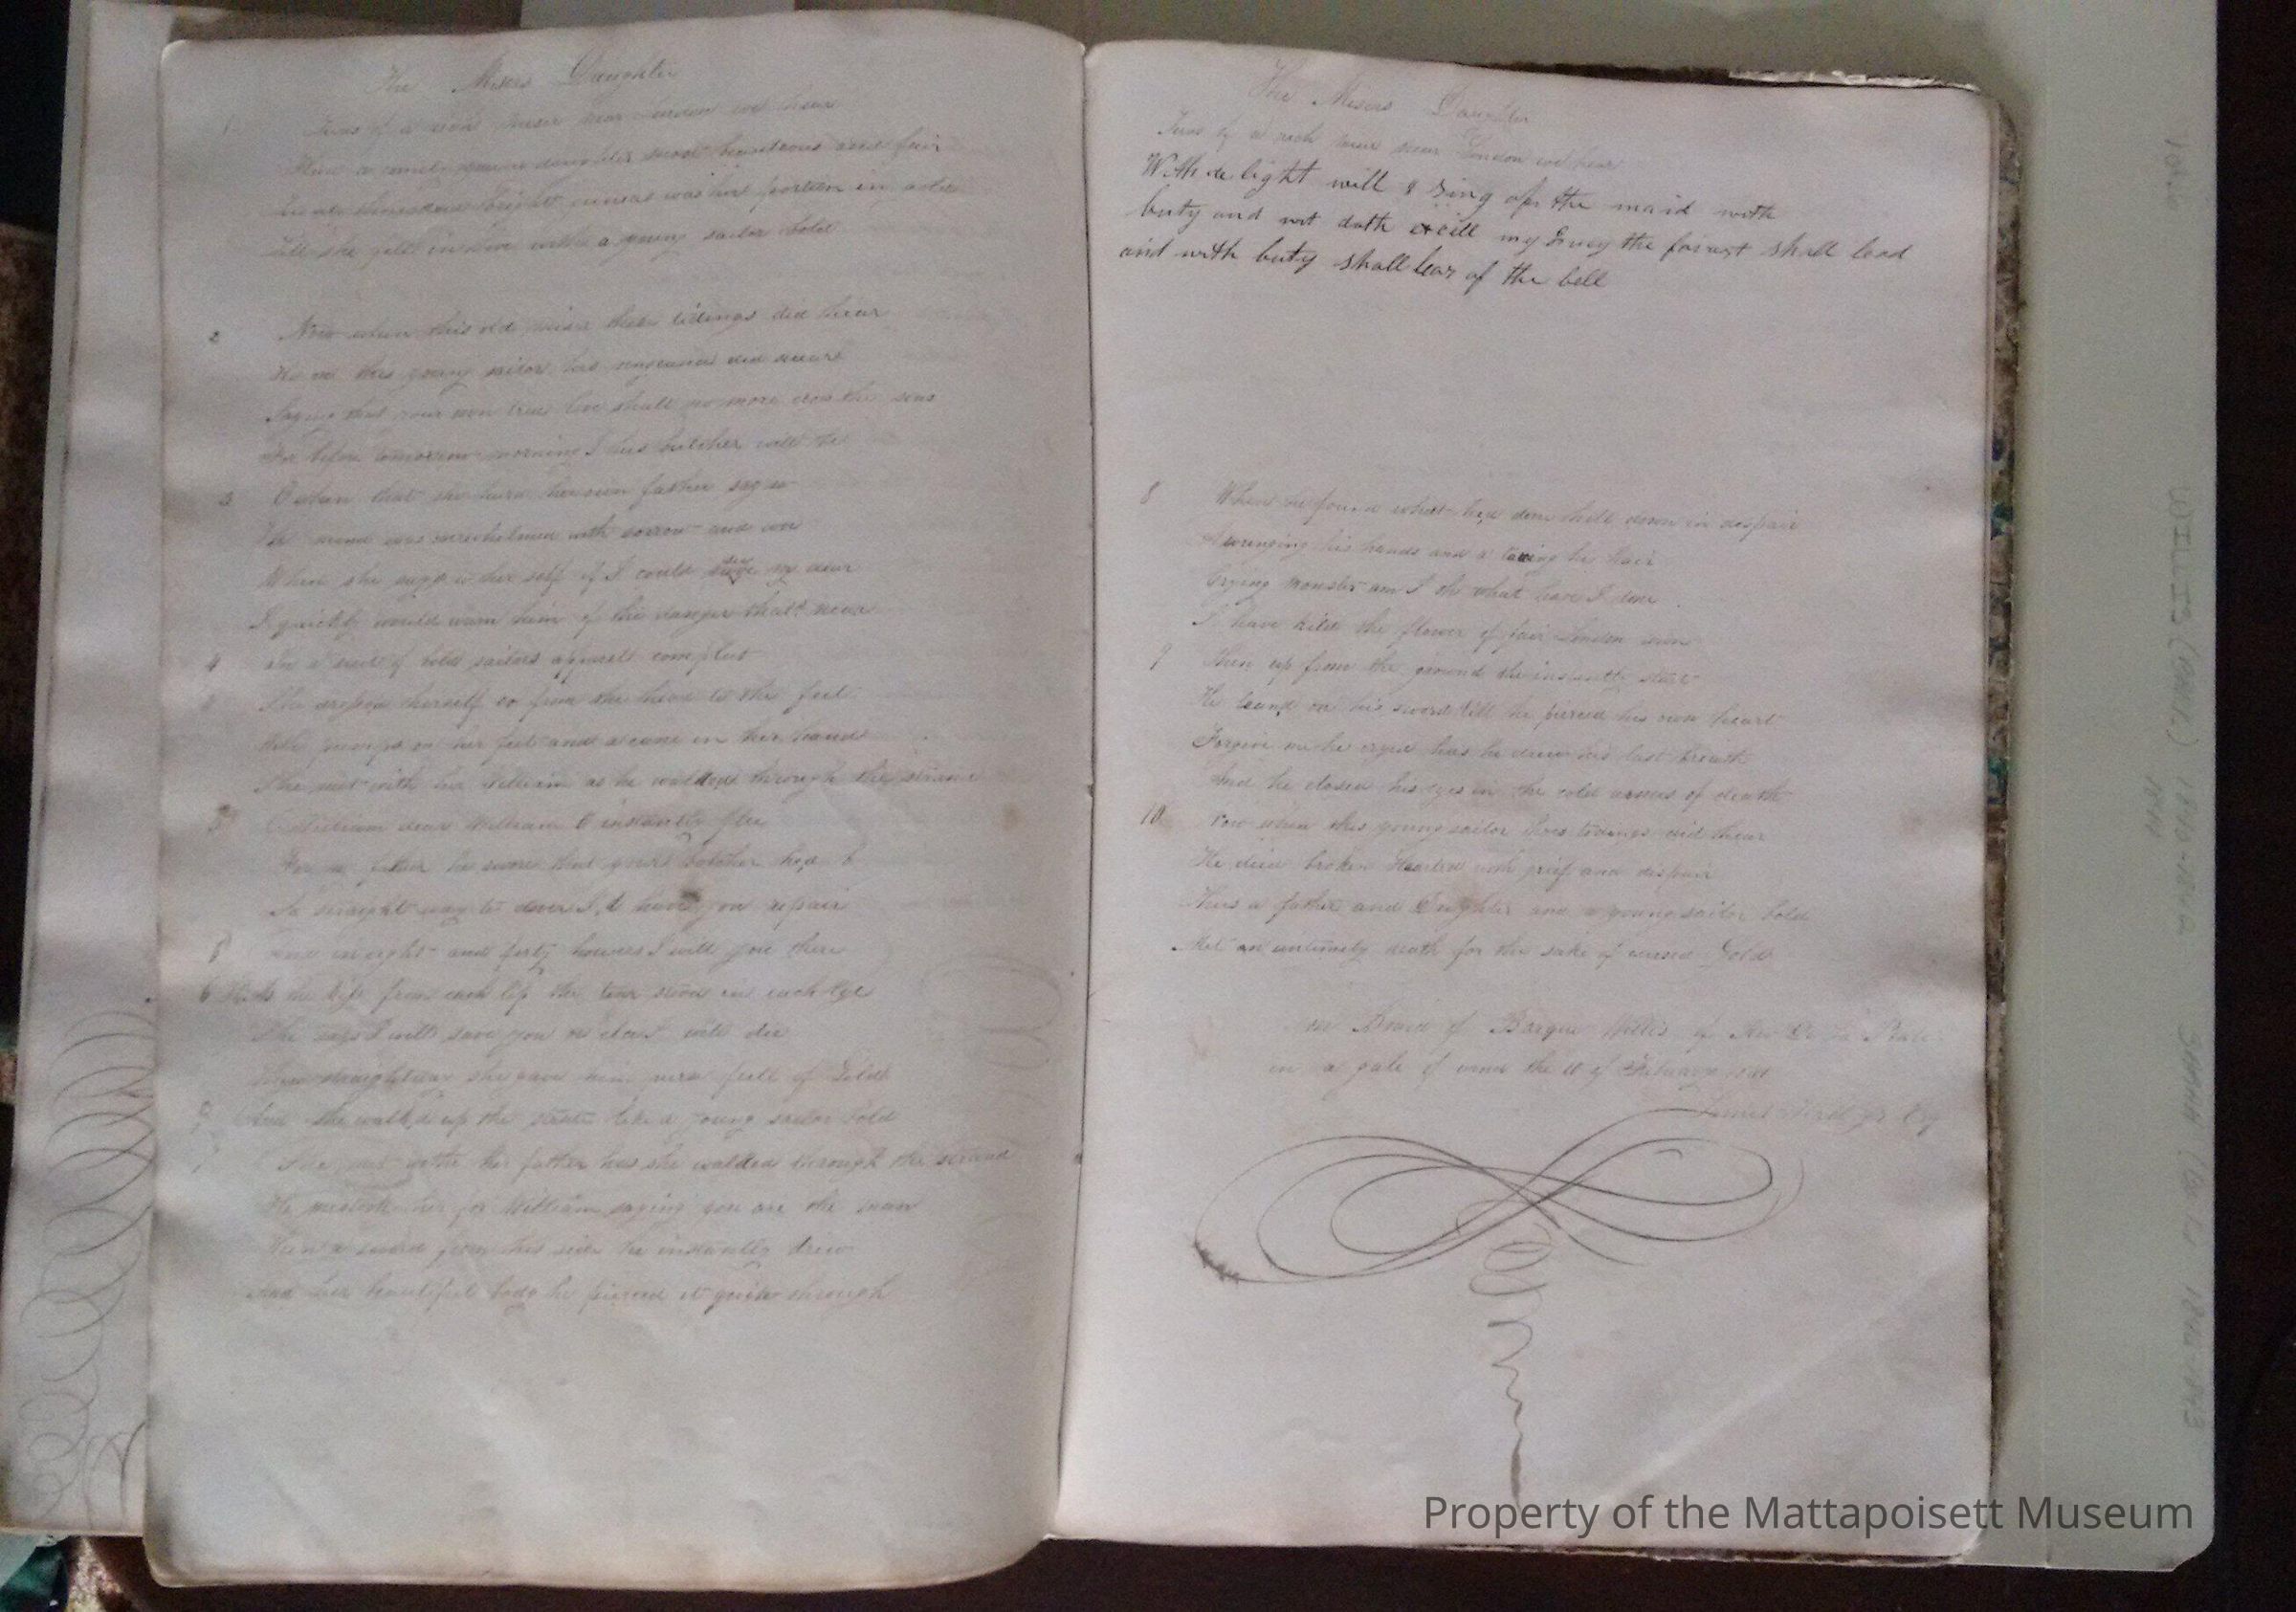 The Misers Daughter
1 Twas of a rich miser near London we hear
Had a comely young daughter most beauteous and fair
bright guineas was her portion in gold
Till she fell in love with a young sailor bold
2 Now when this old miser these tidings did hear
this young sailor his vengeance did swear
Saying that your own true love shall no more cross the seas
For before tomorrow morning I his butcher will be
3 O when that she heard her own father say so
was overwhelmed with sorrow and woe
When she says to her self if I could my dear
I quickly would warn him of the danger that near
4 In a suite of bold sailors apparell compleet
She dressed herself so from the head to the feet
With pumps on her feet and a cane in her hand
She met with her William as he walked through the strand
5 O William dear William O instantly flee
For my father he swore that your butcher he,d b
So straight way to dover I,d have you repair
8 And in eight and forty houres I will you there
6 the kiss from each lip the tear stood in each eye
She says I will save you or else I will die
Then straightway she gave him full of Gold
And she walk,d up the strate like a young sailor bold
7 She met with her father has she walked through the strand
He mistook her for William saying you are the man
Then a sword from his side he instantly drew
And her beautiful body he pierced it quite through
The Misers Daughter
Twas of a rich miser near London we hear
With delight will I sing of the maid with
buty and wit doth excill my the fairest shall lead
and with buty shall bear of the bell
8 When he found what he,d done fell down in despair
A wringing his hands and a taring he hair
Crying monster am I oh what have I done
I have kild the flower of fair London
9 Then up from the ground he instantly start
He leand on his sword till he pierced his own heart
Forgive me he cryed has he drew his last breath
And he closed his eyes in the cold armes of death
10 Now when this young sailor these did hear
He died broken Hearted with grief and despair
Thus a father and Daughter and a young sailor bold
Met an untimely death for the sake of cursed Gold
Board of Barque Willis of Rio De La Plate
in a gale of wind the of
Property of the Mattapoisett Museum